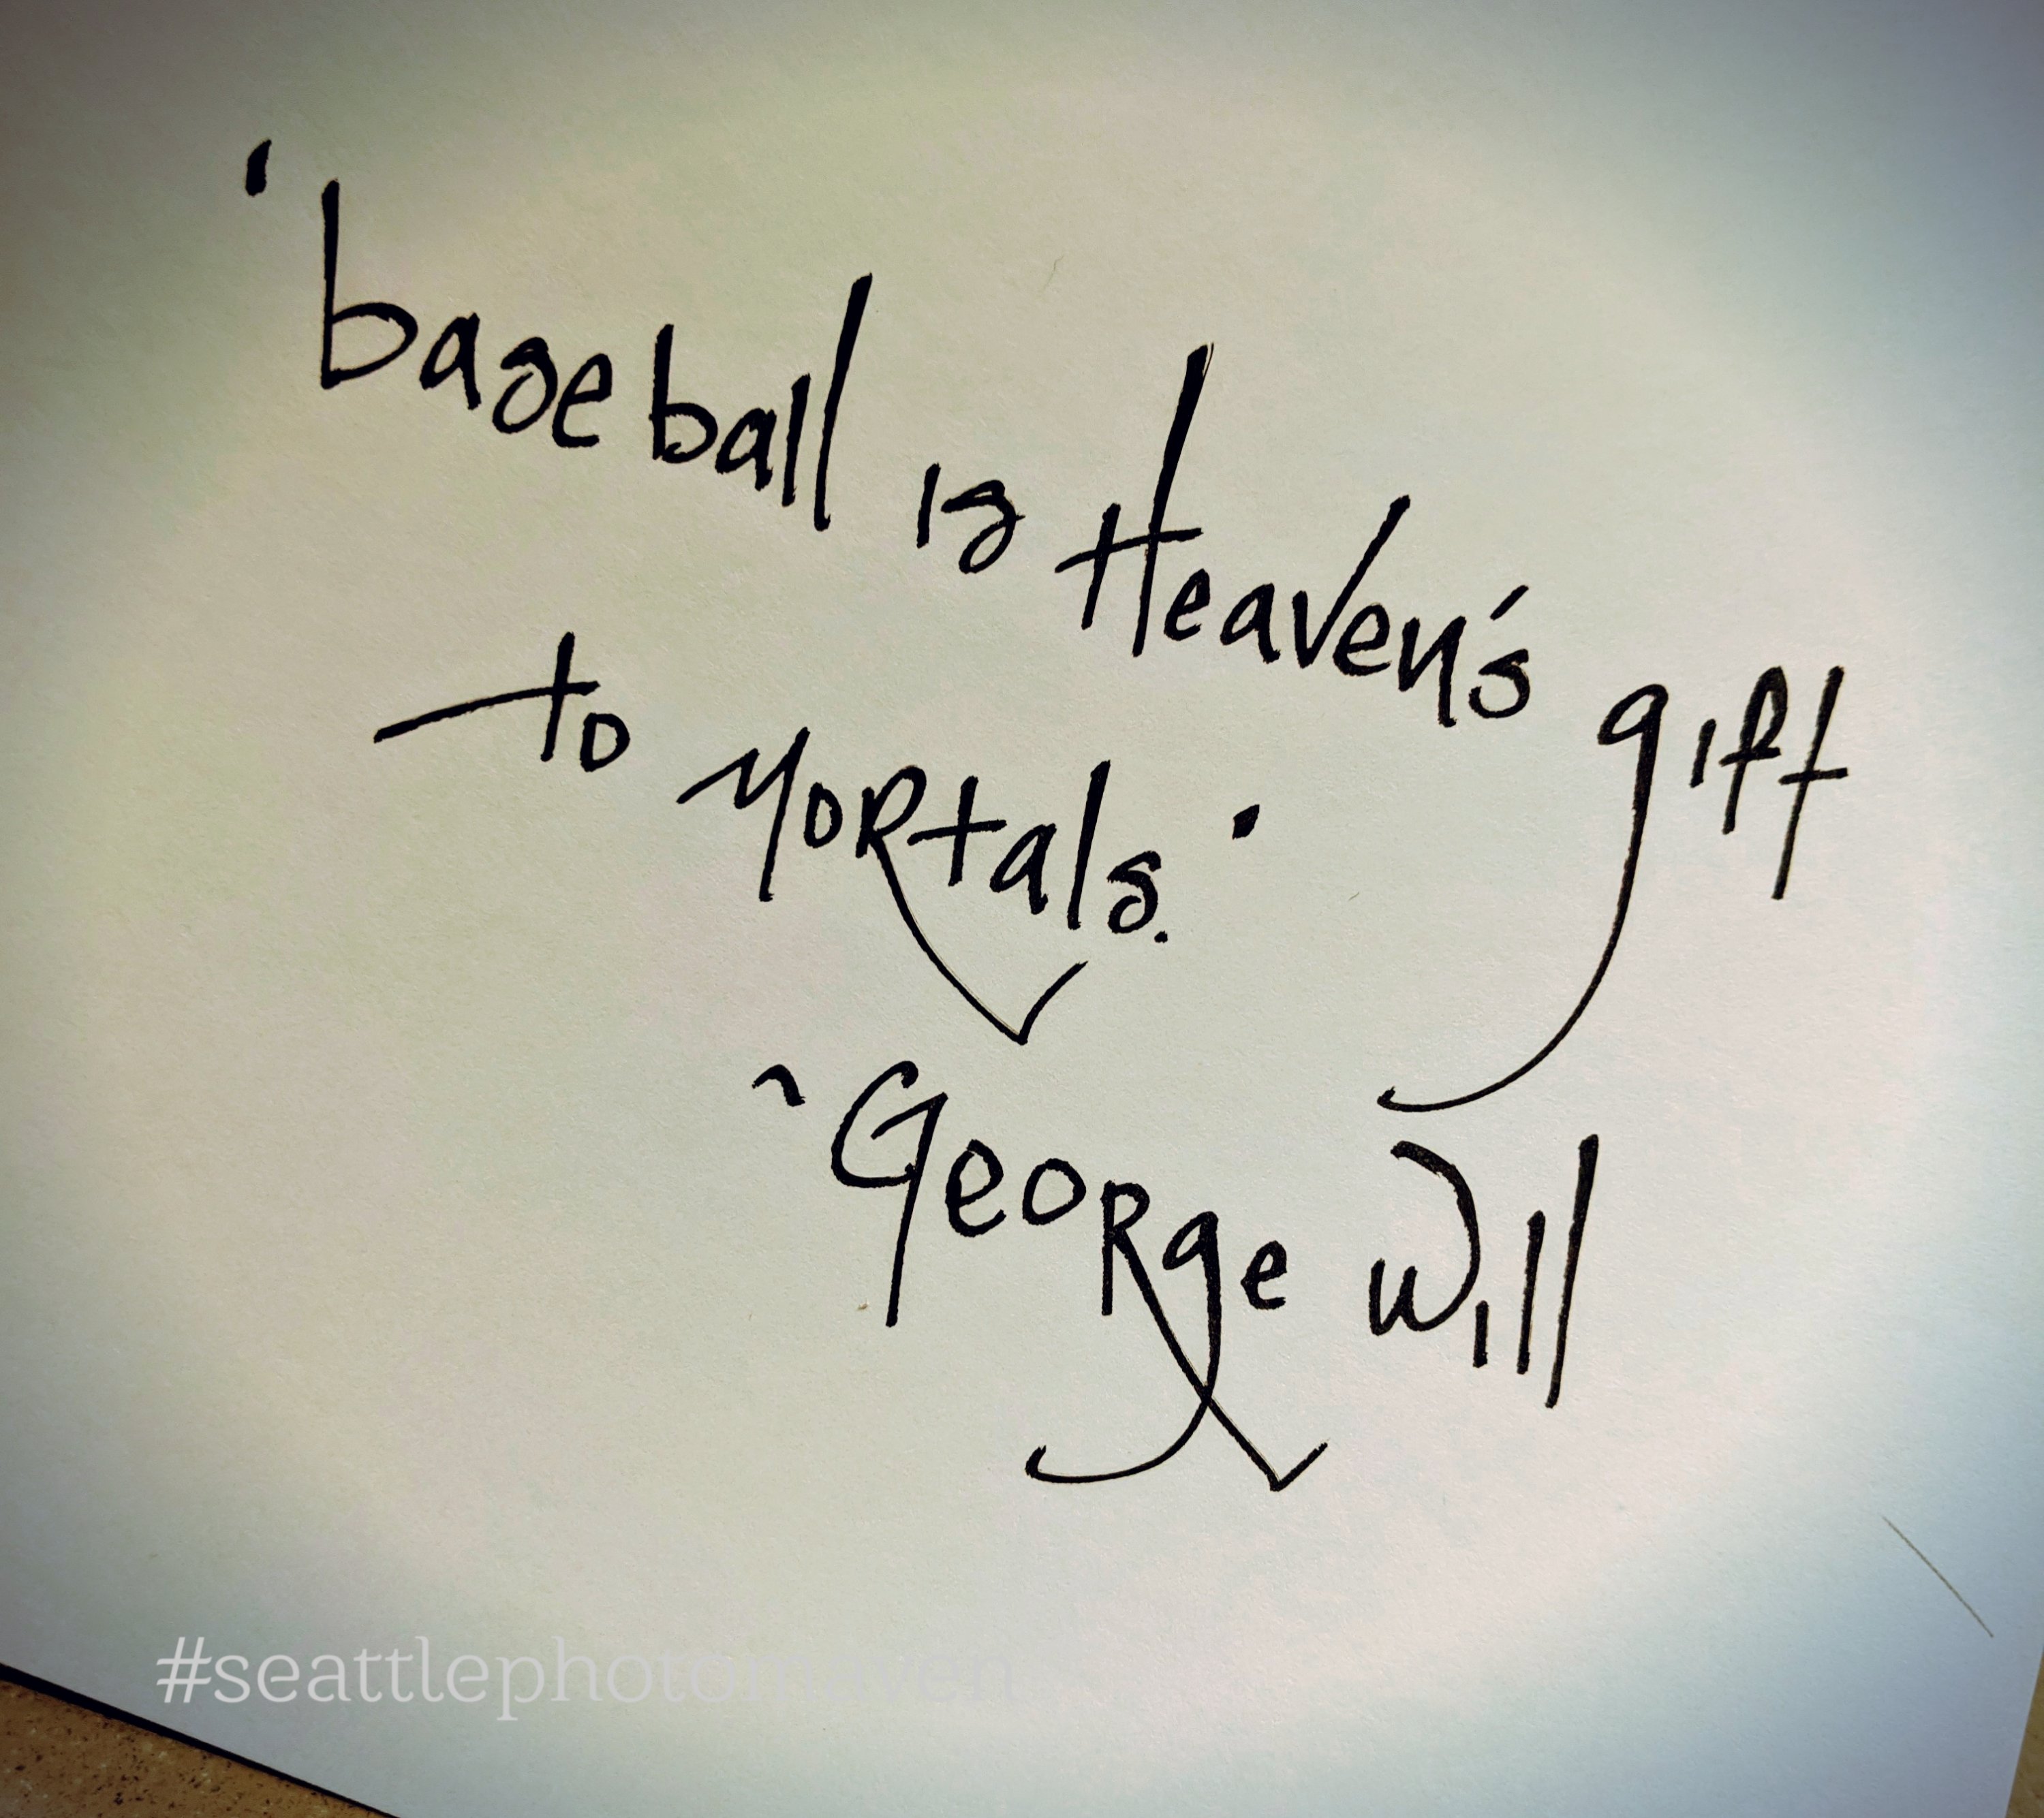 'baseball is Heaven's gift
to Mortals.'
~George Will
#seattlephotomaven